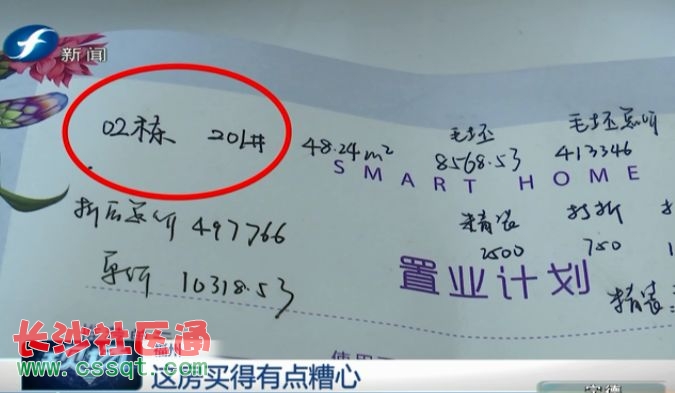 新闻
02栋 201# 48.24m² 毛坯 8568.53 毛坯总价 413346
SMART HOME
折后总价 497766 精装 2500 打折 750
单价 10318.53
置业计划
精装
长沙社区通
www.cssqt.com
福州
这房买得有点糟心
宁德